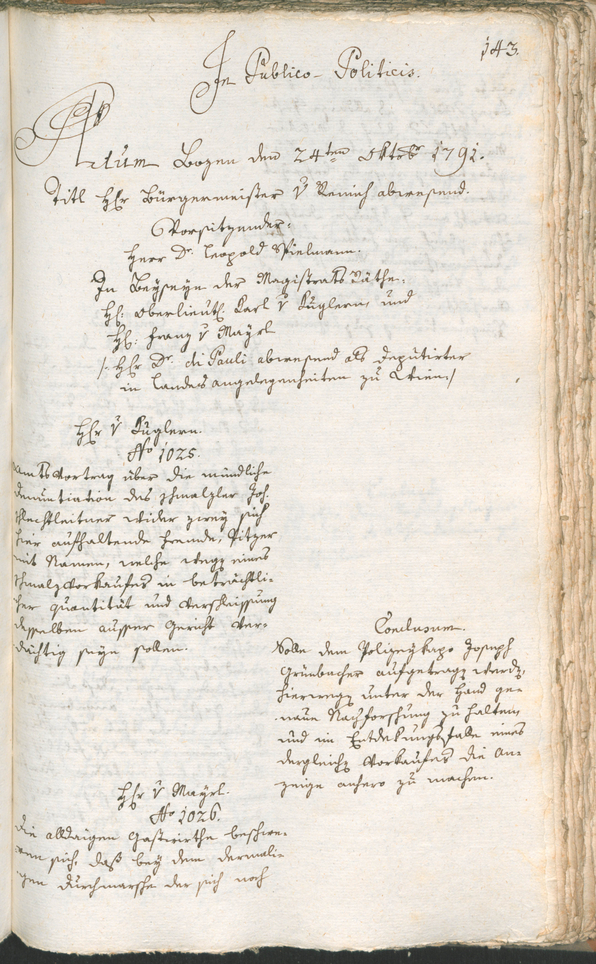 143.
In Publico-Politicis.
Actum Bozen den 24ten Oktobr 1791.
Titl Herr Bürgermeister v Remich abwesend.
Vorsitzender:
Herr Dr. Leopold Spielmann.
In Beyseyn der Magistrats Räthe:
HH: Oberlieut: Karl v Kuglern, und
HH: Franz v Mayrl
/: Herr Dr. di Pauli abwesend als Deputirter
in Landesangelegenheiten zu Wien /
Herr v Kuglern.
No 1025.
Amts Vortrag über die mündliche
denuntiation des Schmalzler Joh.
Schlechtleitner wider zwey sich
hier aufhaltende fremde, Pitzer
mit Namen, welche wegen eines
Schmalzvorkaufes in beträchtli-
cher quantität und Verschleissung
desselben ausser Gericht ver-
dächtig seyn sollen.
Conclusum.
Solle dem Polizeykapo Joseph
Grünbacher aufgetragen werden
hierwegen unter der Hand ge-
naue Nachforschung zu halten,
und im Entdekungsfalle eines
dergleichen Vorkaufes die An-
zeige anhero zu machen.
Herr v Mayrl.
No 1026.
Die alldaigen Gastwirthe beschwe-
ren sich, daß bey dem dermali-
gen Durchmarsche der sich noch